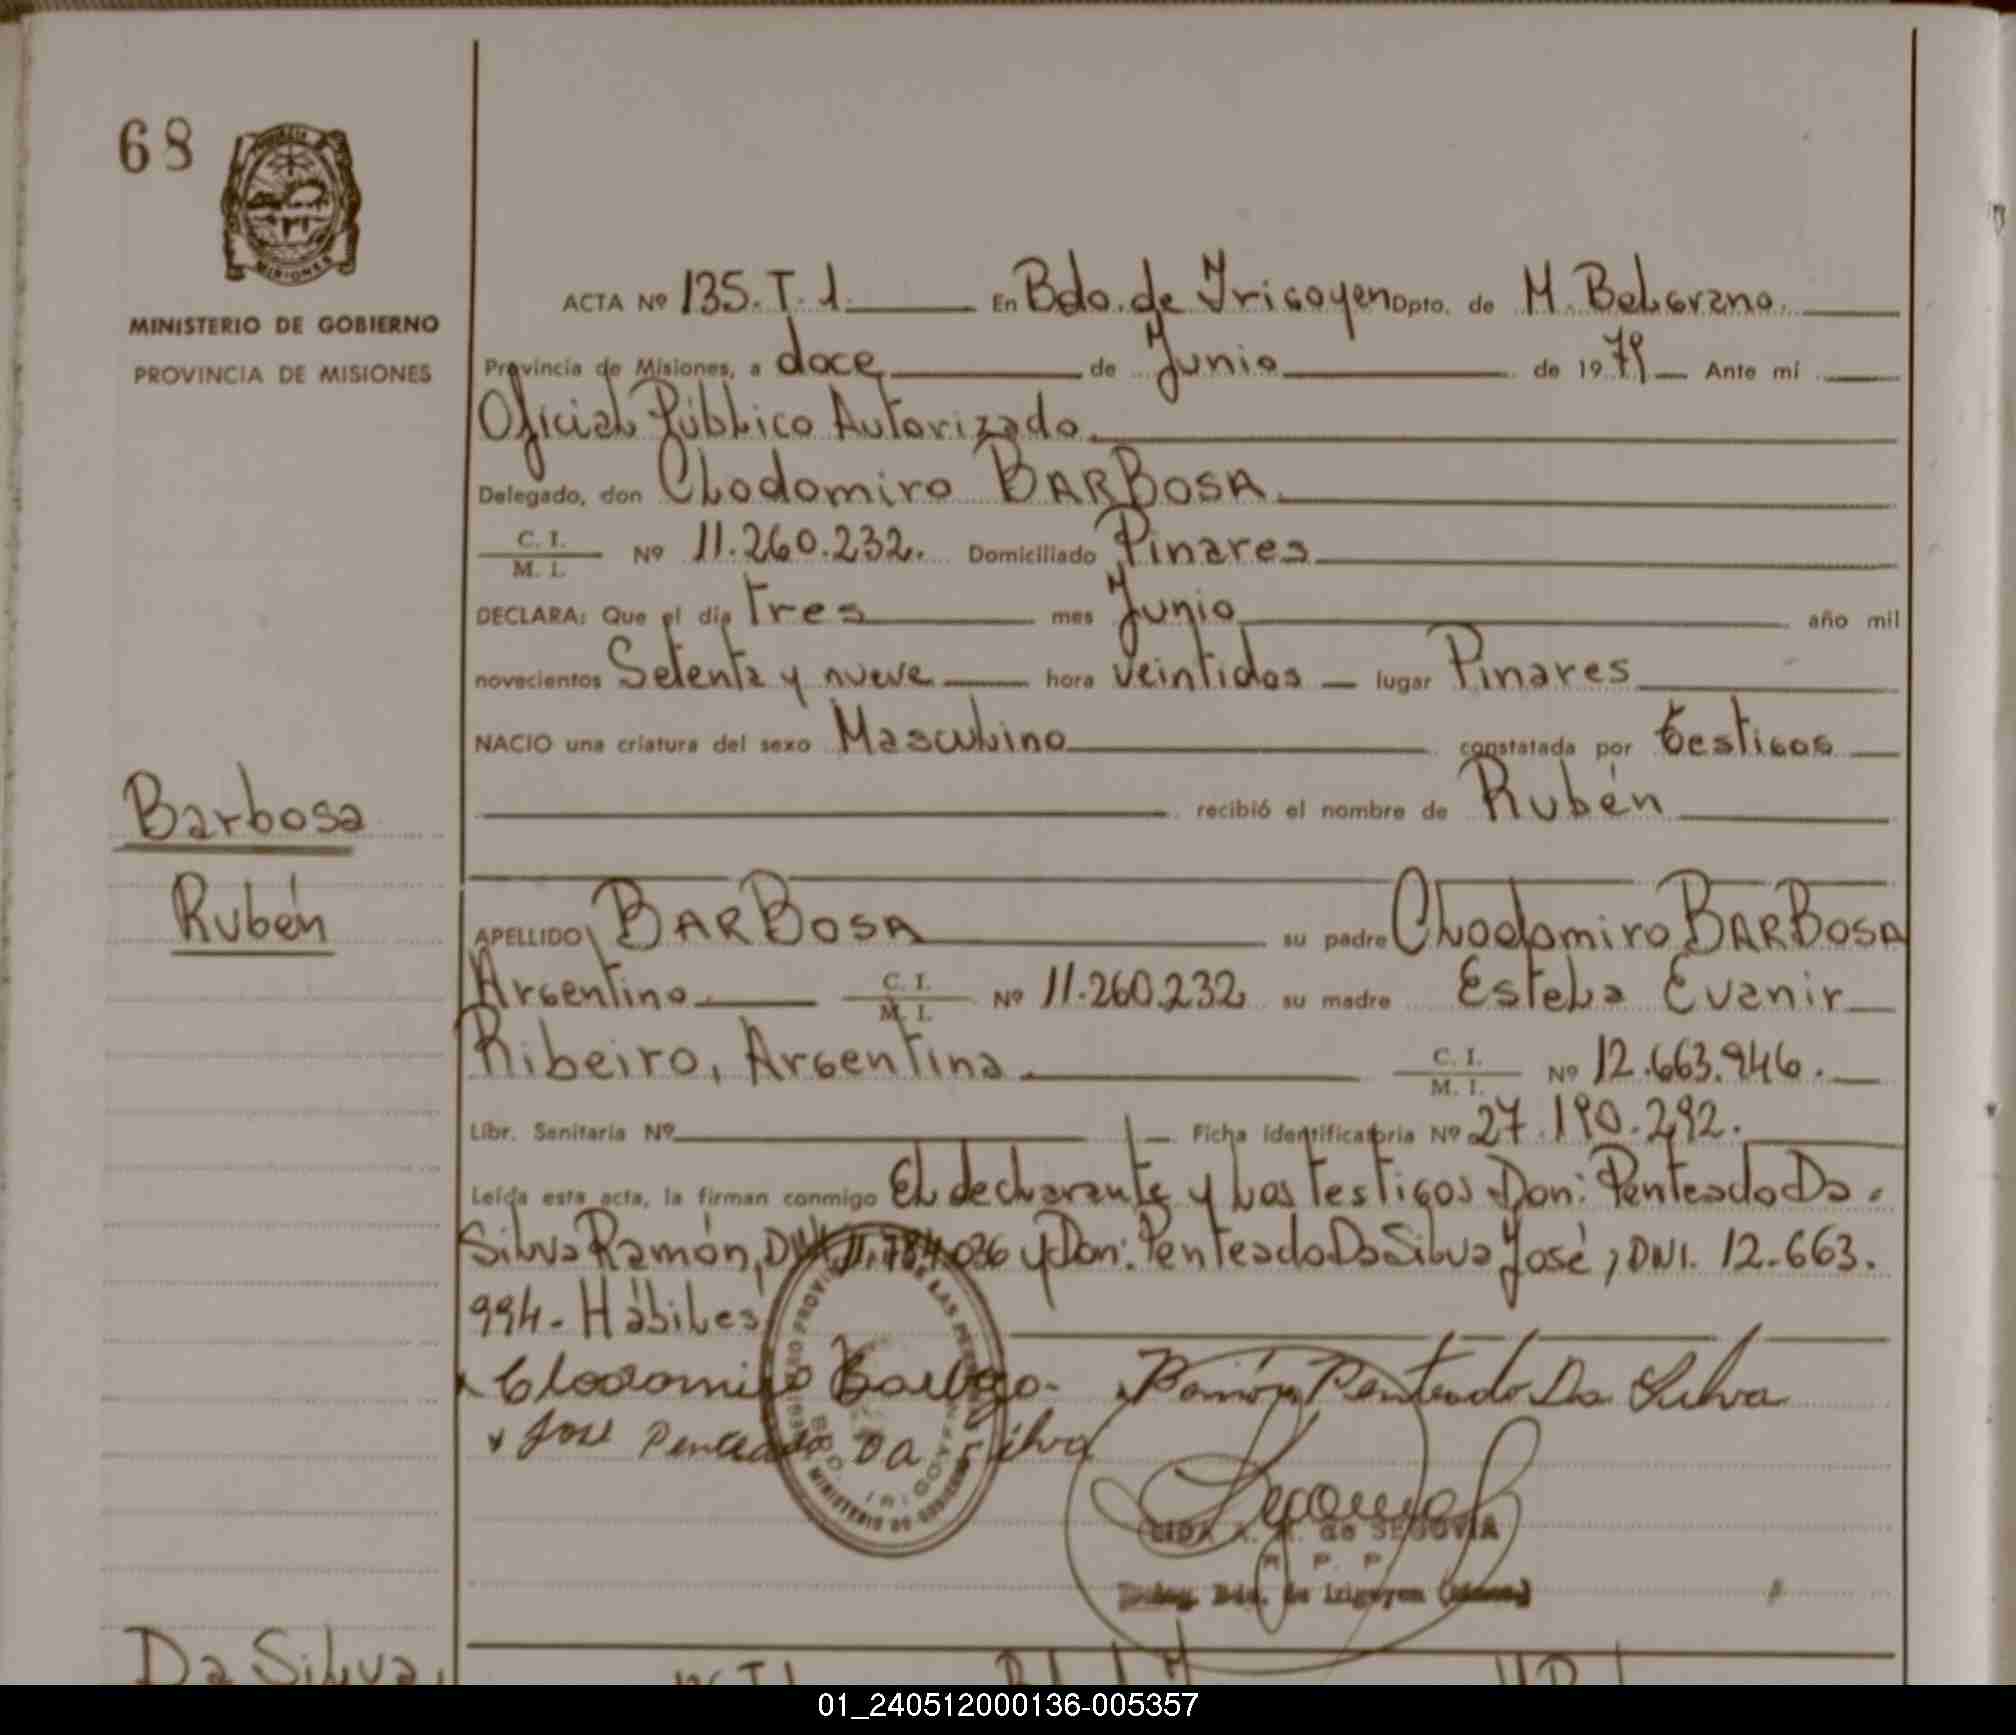 68
MISIONES
MINISTERIO DE GOBIERNO
PROVINCIA DE MISIONES
ACTA Nº 135. T. 1. En Bdo. de Irigoyen Dpto. de M. Belgrano.
Provincia de Misiones, a doce de Junio de 1979 Ante mí
Oficial Público Autorizado.
Delegado, don Clodomiro BARBOSA.
C. I. / M. I. Nº 11.260.232. Domiciliado Pinares
DECLARA: Que el día tres mes Junio año mil
novecientos Setenta y nueve hora veintidos lugar Pinares
NACIO una criatura del sexo Masculino constatada por testigos
recibió el nombre de Rubén
Barbosa
Rubén
APELLIDO BARBOSA su padre Clodomiro BARBOSA
Argentino C. I. / M. I. Nº 11.260.232 su madre Estela Evanir
Ribeiro, Argentina C. I. / M. I. Nº 12.663.946.
Libr. Sanitaria Nº Ficha identificatoria Nº 27.190.292.
Leída esta acta, la firman conmigo El declarante y los testigos Don: Penteado Da.
Silva Ramón, DNI. 11.784.036 y Don: Penteado Da Silva José, DNI. 12.663.
994. Hábiles
Clodomiro Ramón Penteado Da Silva
José Penteado Da Silva
LIDA de SEGOVIA
P. P.
Bdo. de Irigoyen
Da Silva,
01_240512000136-005357